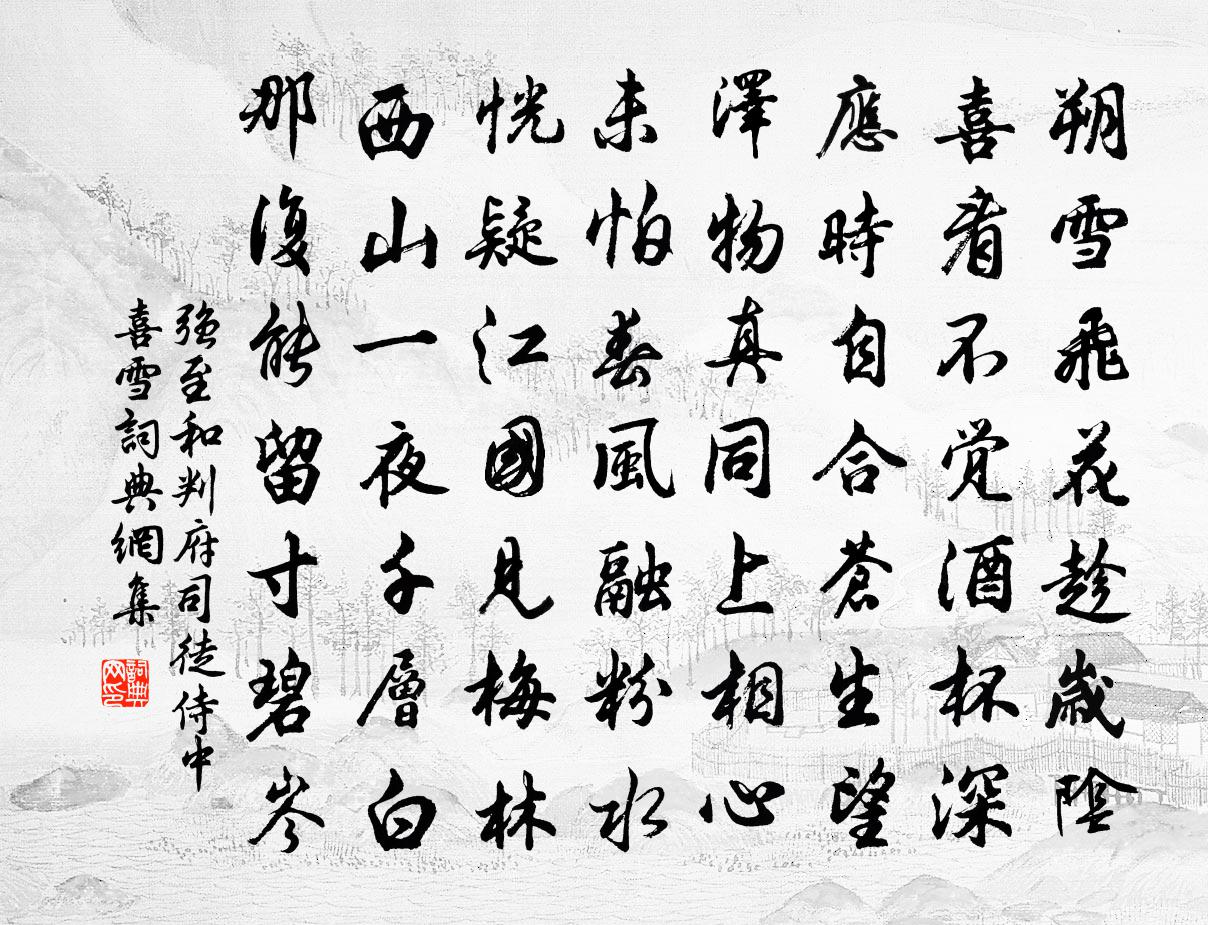 朔雪飛花趁歲陰
喜看不觉酒杯深
應時自合蒼生望
澤物真同上相心
未怕春風融粉水
恍疑江國見梅林
西山一夜千層白
那復能留寸碧岑
强至和判府司徒侍中
喜雪詞典網集
詞典网印